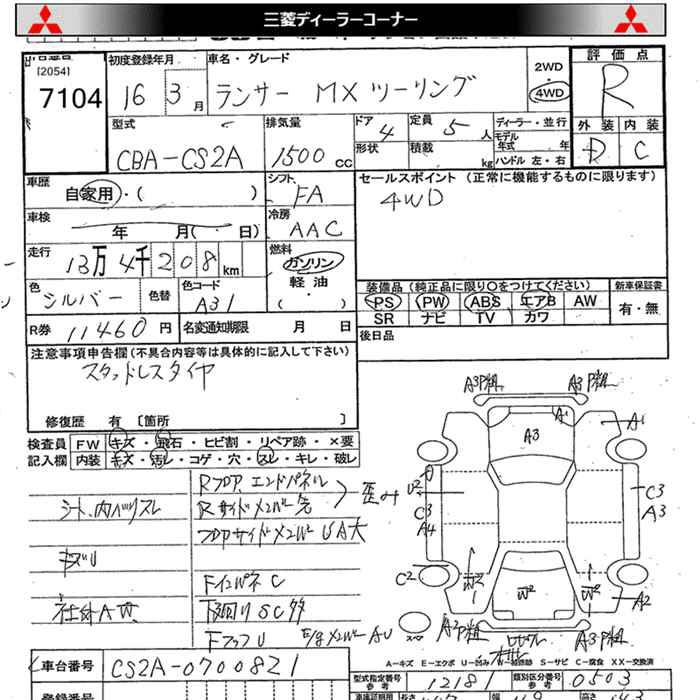 三菱ディーラーコーナー
[2054]
7104
初度登録年月
16 3月
車名・グレード
ランサー MXツーリング
2WD
4WD
評価点
R
外装 内装
D C
型式
CBA-CS2A
排気量
1500cc
ドア 4
形状
定員 5人
積載 kg
ディーラー・並行
モデル年式 年
ハンドル 左・右
車歴
自家用・( )
シフト
FA
車検
年 月( 日)
冷房
AAC
走行
13万4千208km
燃料
ガソリン
軽油
・( )
色
シルバー
色替
色コード
A31
R券 11460円
名変通知期限 月 日
セールスポイント (正常に機能するものに限ります)
4WD
装備品(純正品に限り○をつけてください)
PS PW ABS エアB AW
SR ナビ TV カワ
新車保証書
有・無
後日品
注意事項申告欄(不具合内容等は具体的に記入して下さい)
スタッドレスタイヤ
修復歴 有 [箇所 ]
検査員記入欄
FW キズ・飛石・ヒビ割・リペア跡・×要
内装 キズ・汚レ・コゲ・穴・スレ・キレ・破レ
シート、内ハリスレ
Rフロア、エンドパネル
Rサイドメンバー先
歪み
フロアサイドメンバーUA大
キズU
FインパネC
社外AW
下廻りSC多
FフックU
車台番号
CS2A-0700821
登録番号
A3 A1 A1
U2 C3 A4
C3 A3
C2 W2 W2 W2 A2
A-キズ E-エクボ U-凹み W-補修跡 S-サビ C-腐食 XX-交換済
型式指定番号 参考
12181
類別区分番号 参考
0503
長さ
高さ